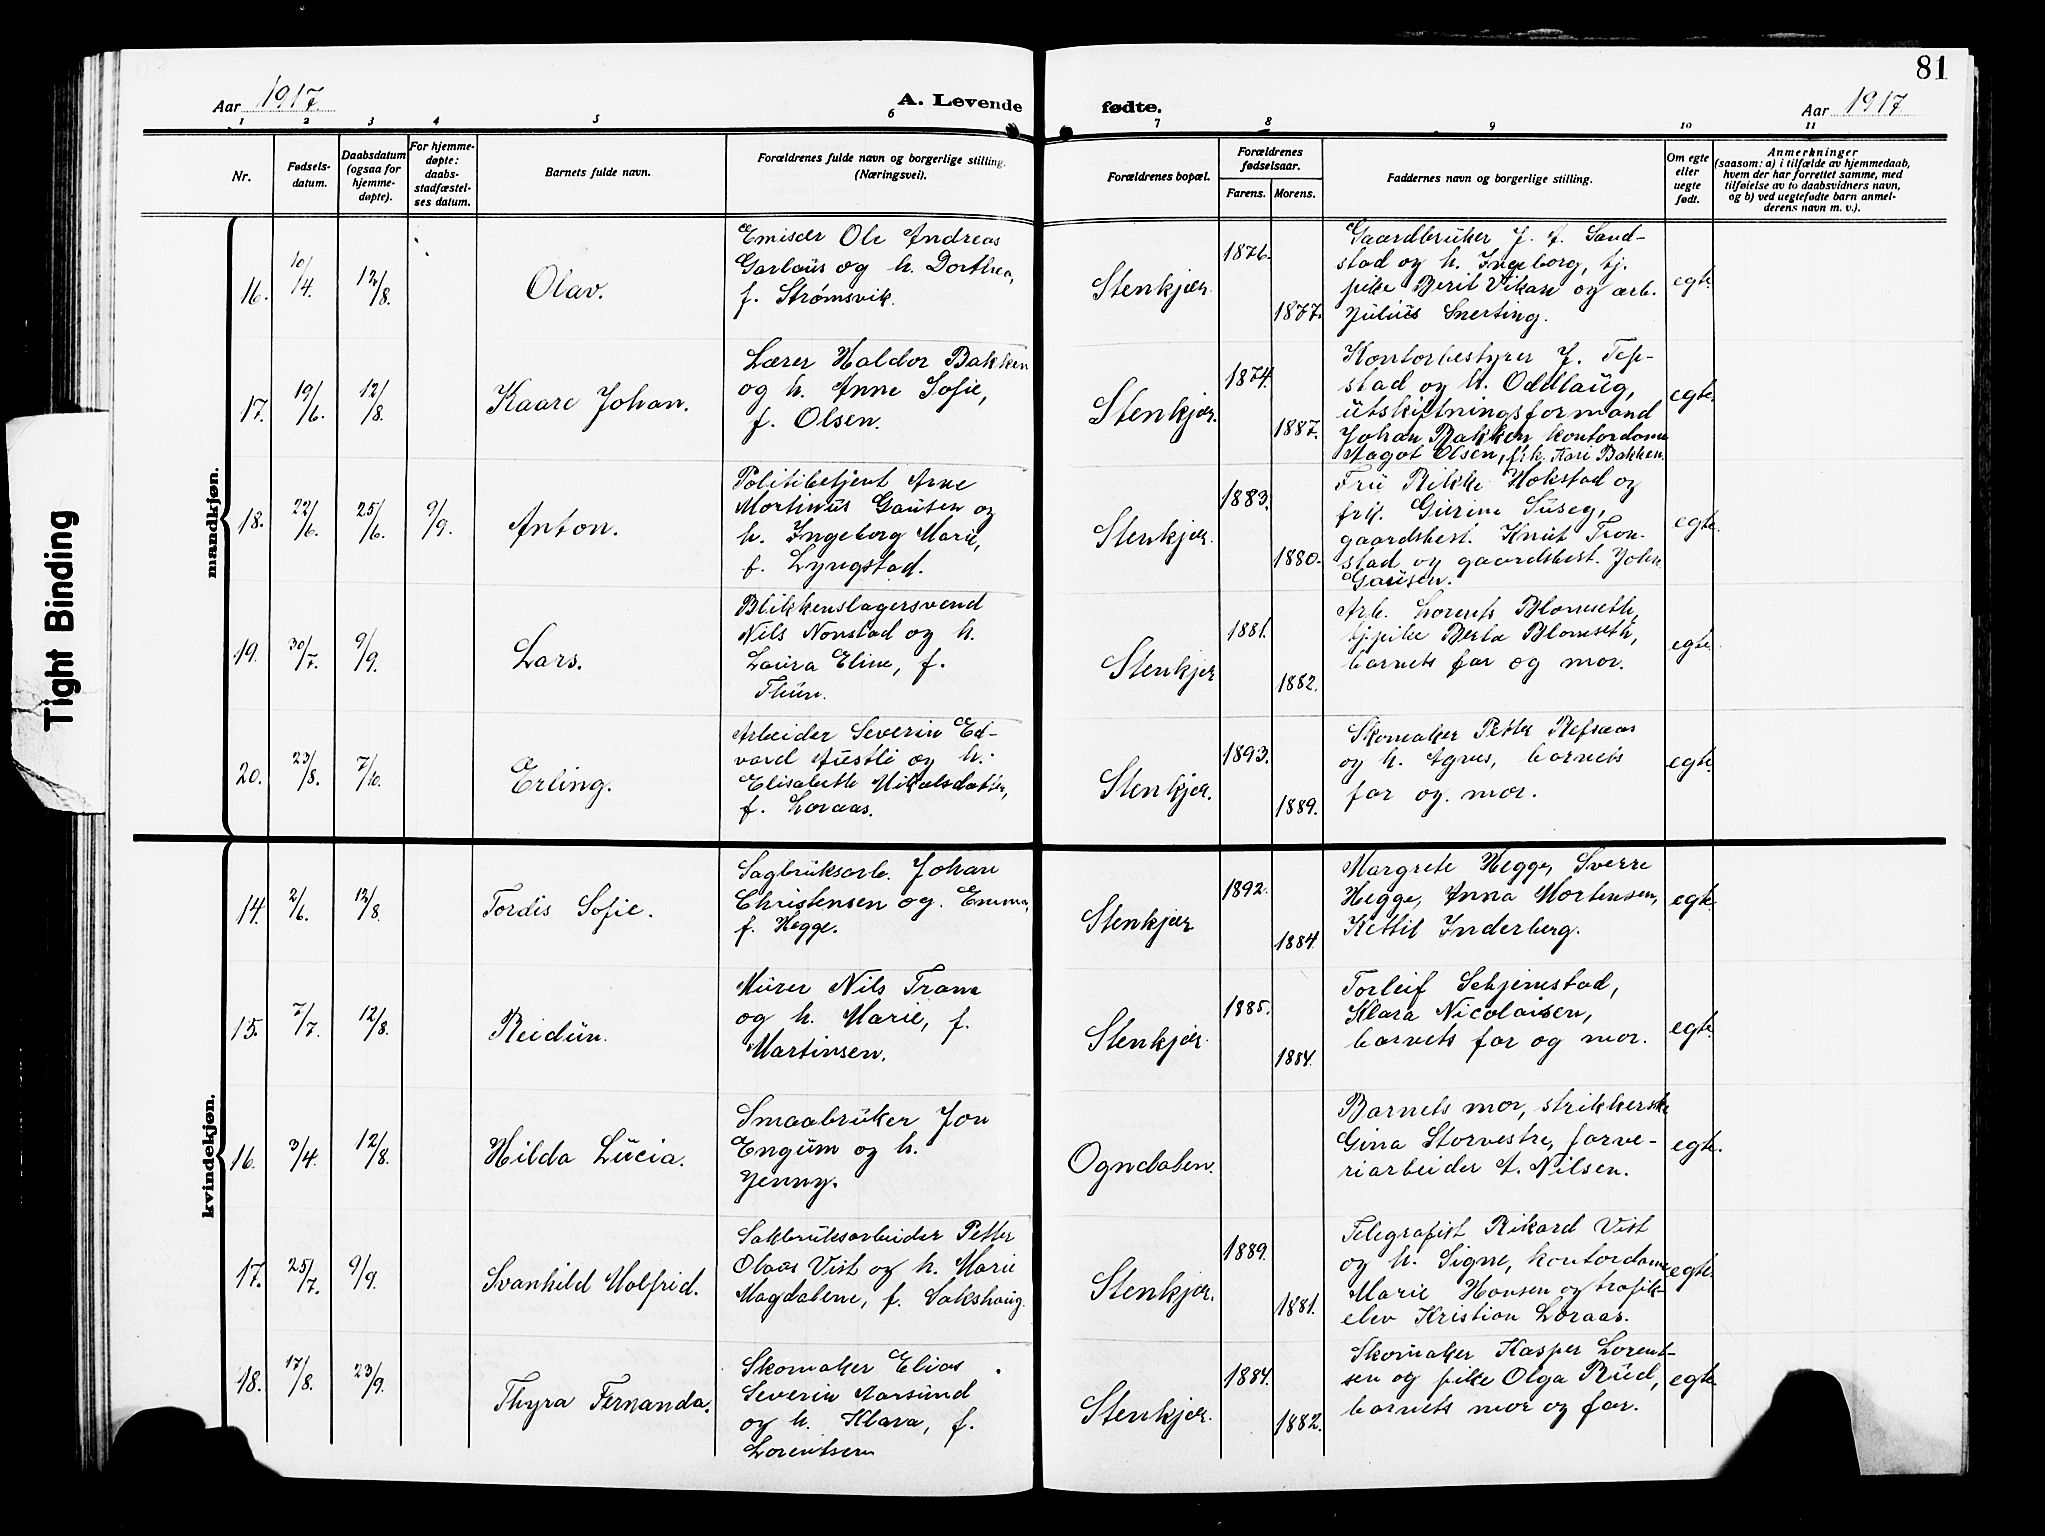 81
Aar 1917.
A. Levende
fødte.
Aar 1917
1 2 3 4 5 6 7 8 9 10 11
Nr.
Fødsels-
datum.
Daabsdatum
(ogsaa for
hjemme-
døpte).
For hjemme-
døpte:
daabs-
stadfæstel-
ses datum.
Barnets fulde navn.
Forældrenes fulde navn og borgerlige stilling.
(Næringsvei).
Forældrenes bopæl.
Forældrenes
fødselsaar.
Farens. Morens.
Faddernes navn og borgerlige stilling.
Om egte
eller
uegte
født.
Anmerkninger
(saasom: a) i tilfælde av hjemmedaab,
hvem der har forrettet samme, med
tilføielse av to daabsvidners navn,
og b) ved uegtefødte barn anmel-
derens navn m. v.).
Tight Binding
mandkjøn.
16. 10/4. 12/8. Olav.
Ole Andreas
Garlaus og h. Dorthea,
f. Strømsvik.
Stenkjær.
1876.
1877.
Gaardbruker J. A. Sand-
stad og h. Ingeborg, tj.
pike Berit Vikan og arb.
Julius Snerting.
egte.
17. 19/6. 12/8. Kaare Johan.
Lærer Haldor Bakken
og h. Anne Sofie,
f. Olsen.
Stenkjær.
1874.
1887.
Kontorbestyrer J. Tep-
stad og h. Oddlaug,
utskiftningsformand
Johan Bakken kontordame
Magot Olsen, frk. Kari Bakken.
egte.
18. 22/6. 25/6. 9/9. Anton.
Politibetjent Arne
Mortinus Gausen og
h. Ingeborg Marie,
f. Lyngstad.
Stenkjær.
1883.
1880.
Fru Rikke Hokstad og
frk. Gurine Suseg,
gaardsbest. Knut Tron-
stad og gaardsbest. John
Gausen.
egte.
19. 30/7. 9/9. Lars.
Blikkenslagersvend
Nils Nonstad og h.
Laura Eline, f.
Thun.
Stenkjer
1881.
1882.
Arb. Lorents Blomseth,
tjpike Berta Blomseth,
barnets far og mor.
egte.
20. 23/8. 7/10. Erling.
Arbeider Severin Ed-
vard Austli og h.
Elisabeth Nikolsdatter,
f. Loraas.
Stenkjær.
1893.
1889.
Skomaker Petter Refsaas
og h. Agnes, barnets
far og mor.
egte.
kvindekjøn.
14. 2/6. 12/8. Tordis Sofie.
Sagbruksarb. Johan
Christensen og Emma,
f. Hegge.
Stenkjær
1892.
1884
Margrete Hegge, Sverre
Hegge, Anna Mortensen,
Kettil Inderberg.
egte.
15. 7/7. 12/8. Reidun.
Murer Nils Trana
og h. Marie, f.
Martinsen.
Stenkjær.
1885.
1884.
Torleif Schjemstad,
Klara Nicolaisen,
barnets far og mor.
egte.
16. 3/4. 12/8. Hilda Lucia.
Smaabruker Jon
Engum og h.
Jenny.
Ogndalen.
Barnets mor, strikkerske
Gina Storvestre, farve-
riarbeider A. Nilsen.
egte.
17. 25/7. 9/9. Svanhild Molfrid.
Sakbruksarbeider Petter
Olaas Vist og h. Marie
Magdalene, f. Sakshaug.
Stenkjær.
1889.
1881.
Telegrafist Rikard Vist
og h. Signe, kontordame
Marie Hansen og trafik-
elev Kristian Loraas.
egte.
18. 17/8. 23/9. Thyra Fernanda.
Skomaker Elias
Severin Aarsund
og h. Klara, f.
Lorentsen
Stenkjær.
1884.
1882.
Skomaker Kasper Lorent-
sen og pike Olga Rud,
barnets mor og far.
egte.